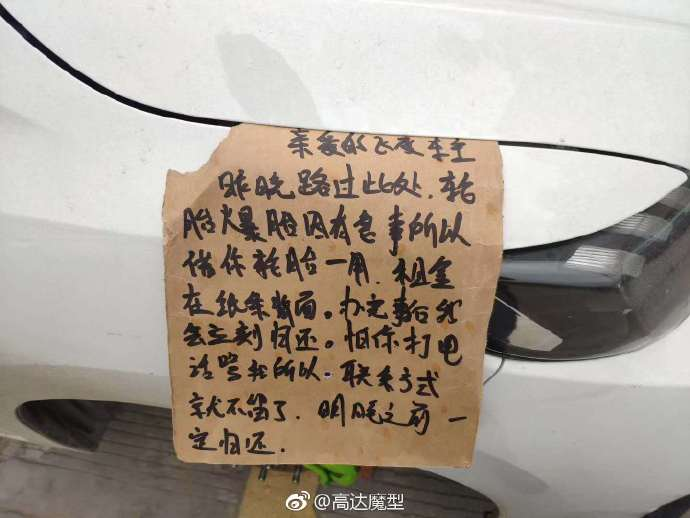 亲爱的飞度车主
昨晚路过此处，轮
胎爆胎因有急事所以
借你轮胎一用，租金
在纸条背面。办完事后我
会立刻归还。怕你打电
话骂我所以，联系方式
就不留了．明晚之前一
定归还．
@高达魔型